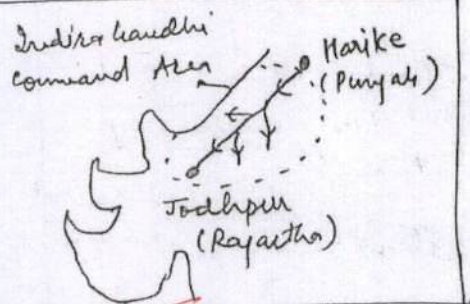 Indira Gandhi
Command Area
Harike
(Punjab)
Jodhpur
(Rajastha)